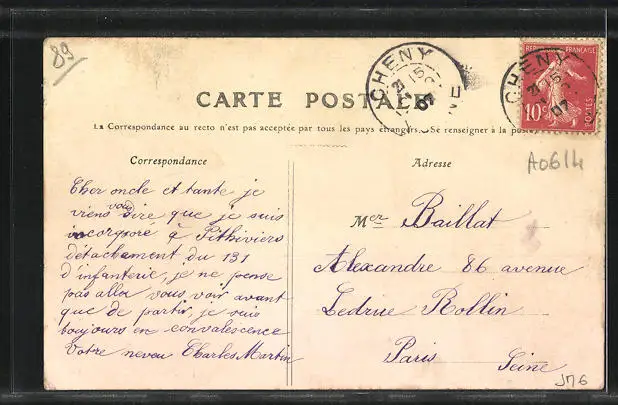 89
CARTE POSTALE
La Correspondance au recto n'est pas acceptée par tous les pays étrangers. Se renseigner à la poste
Correspondance
Cher oncle et tante je
viens vous dire que je suis
incorporé à Pithiviers
détachement du 131
d'infanterie, je ne pense
pas aller vous voir avant
que de partir, je suis
toujours en convalescence
Votre neveu Charles Martin
CHENY
15
07
REPUBLIQUE FRANÇAISE
10c
POSTES
CHENY
15
07
A0614
Adresse
Baillat
Alexandre 86 avenue
Ledriue Rollin
Paris Seine
J76